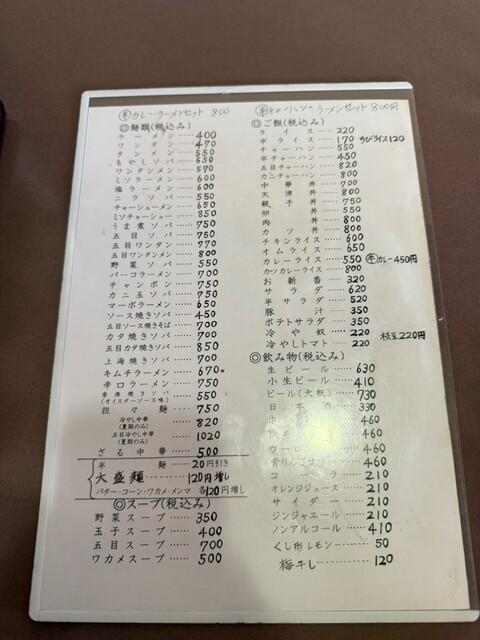 半カレーラーメンセット 800
◎麺類(税込み)
ラーメン 400
ワンタン 470
タンメン 550
もやしソバ 550
ワンタンメン 570
ミソラーメン 600
塩ラーメン 600
ニラソバ 550
チャーシューメン 650
ミソチャーシュー 850
うま煮ソバ 750
五目ソバ 750
五目ワンタン 770
五目ワンタンメン 800
野菜ソバ 550
バーコラーメン 700
チャンポン 750
カニ玉ソバ 750
マーボラーメン 650
ソース焼きソバ 450
五目ソース焼きそば 700
カタ焼きソバ 700
五目カタ焼きソバ 850
上海焼きソバ 700
キムチラーメン 670
辛口ラーメン 750
香港焼きソバ 550
(オイスターソース味)
担々麺 750
冷やし中華 820
(夏期のみ)
五目冷やし中華 1020
(夏期のみ)
ざる中華 500
半麺 20円引き
大盛麺 120円増し
バター・コーン・ワカメ・メンマ 各120円増し
◎スープ(税込み)
野菜スープ 350
玉子スープ 400
五目スープ 700
ワカメスープ 500
半チャーハン・ラーメンセット 800円
◎ご飯(税込み)
ライス 220
半ライス 170 ちびライス120
チャーハン 550
半チャーハン 450
五目チャーハン 820
カニチャーハン 800
中華丼 700
天津丼 700
親子丼 750
卵丼 550
肉丼 800
カツ丼 800
チキンライス 600
オムライス 650
カレーライス 550 半カレー450円
カツカレーライス 800
お新香 320
サラダ 620
半サラダ 520
豚汁 350
ポテトサラダ 350
冷や奴 220 枝豆220円
冷やしトマト 220
◎飲み物(税込み)
生ビール 630
小生ビール 410
ビール(大瓶) 730
日本酒 330
460
460
ウーロ 460
青りんごサワー 460
コーラ 210
オレンジジュース 210
サイダー 210
ジンジャエール 210
ノンアルコール 410
くし形レモン 50
梅干し 120